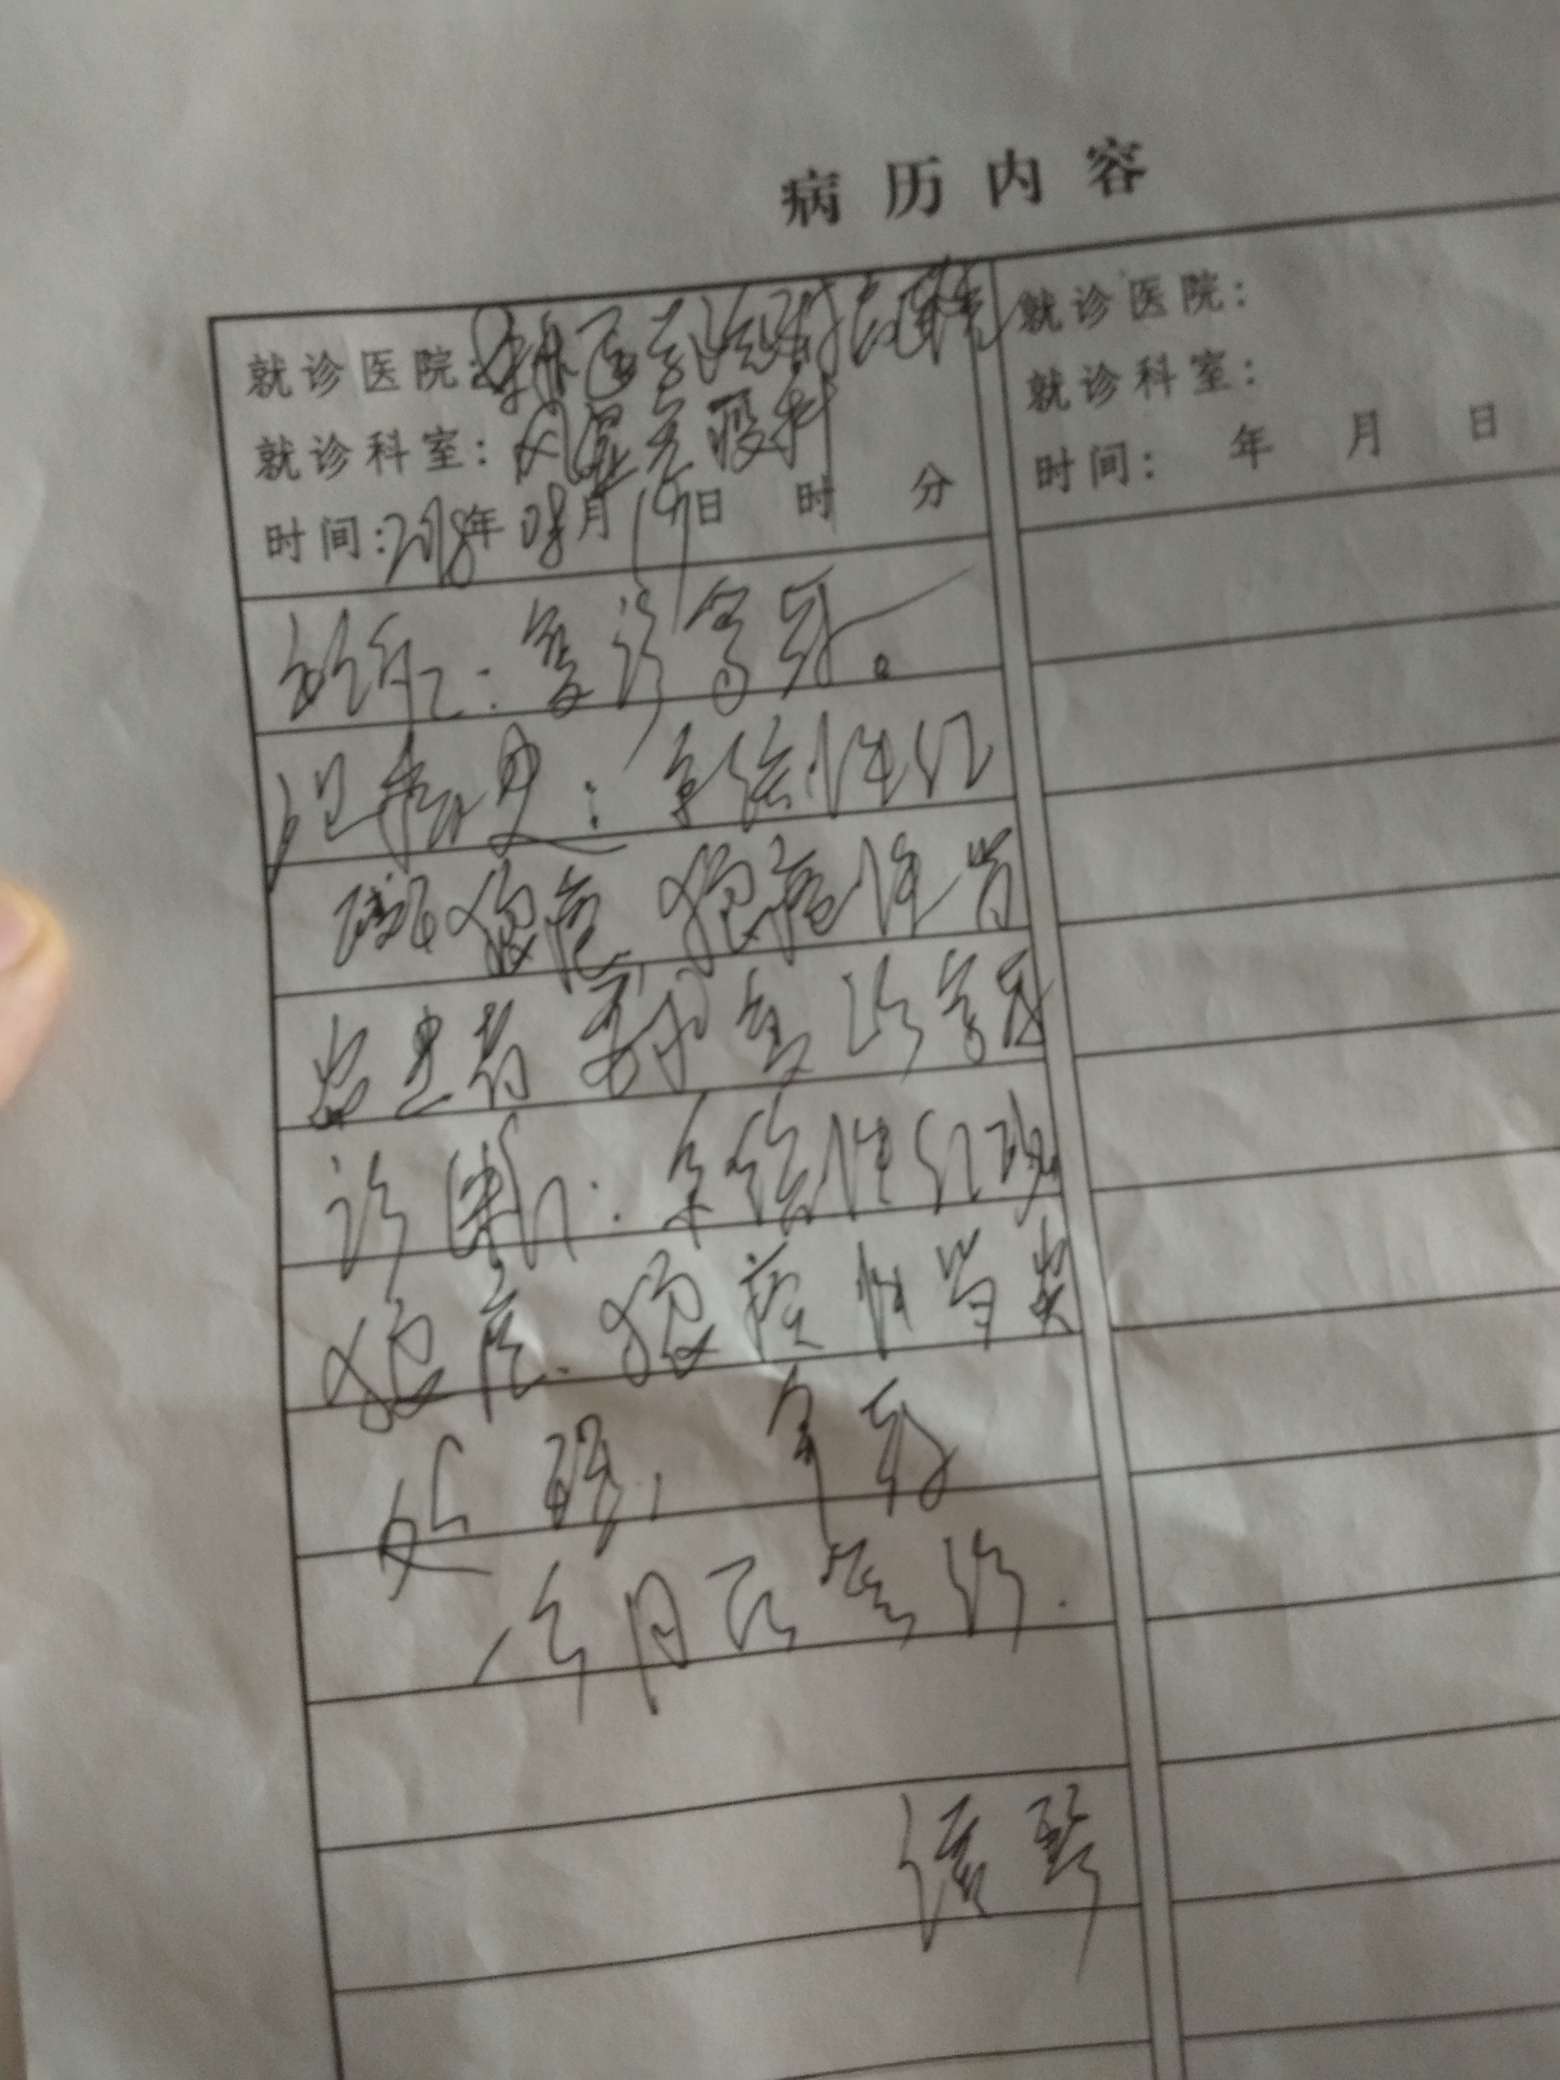 病历内容
就诊医院: 医学院附医院
就诊科室: 风湿免疫科
时间: 2018年08月19日 时 分
主诉: 复诊拿药。
现病史: 系统性红
斑狼疮 狼疮性肾
炎患者 来复诊拿药
诊断: 系统性红斑
狼疮. 狼疮性肾炎
处理: 拿药
一个月后复诊.
就诊医院:
就诊科室:
时间: 年 月 日